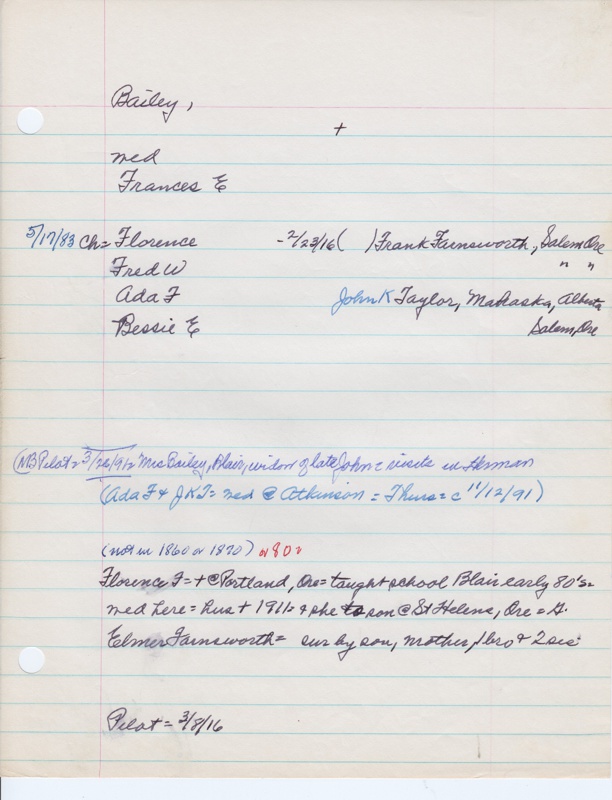 Bailey,
+
med
Frances E
5/17/83 Ch= Florence - 2/23/16 ( ) Frank Farnsworth, Salem, Ore
Fred W " "
Ada F John K Taylor, Alberta
Bessie E Salem, Ore
(NB Pilot= 3/26/91= Mrs Bailey, Blair, widow of late John= visits in Herman
(Ada F + J K T= med @ Atkinson = Thurs= c 11/12/91)
(not in 1860 or 1870) or 80
Florence F= + @ Portland, Ore= taught school Blair early 80's=
med here= hus + 1911= + she to son @ St Helens, Ore =
Elmer Farnsworth= sur by son, mother, 1 bro + 2 sis
Pilot = 3/8/16